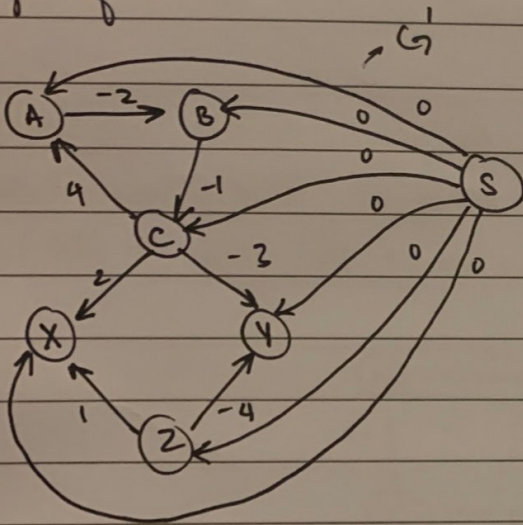 G'
A -2 B 0 0
0 S
4 -1 0
C 0 0
2 -3
X Y
1 -4
Z